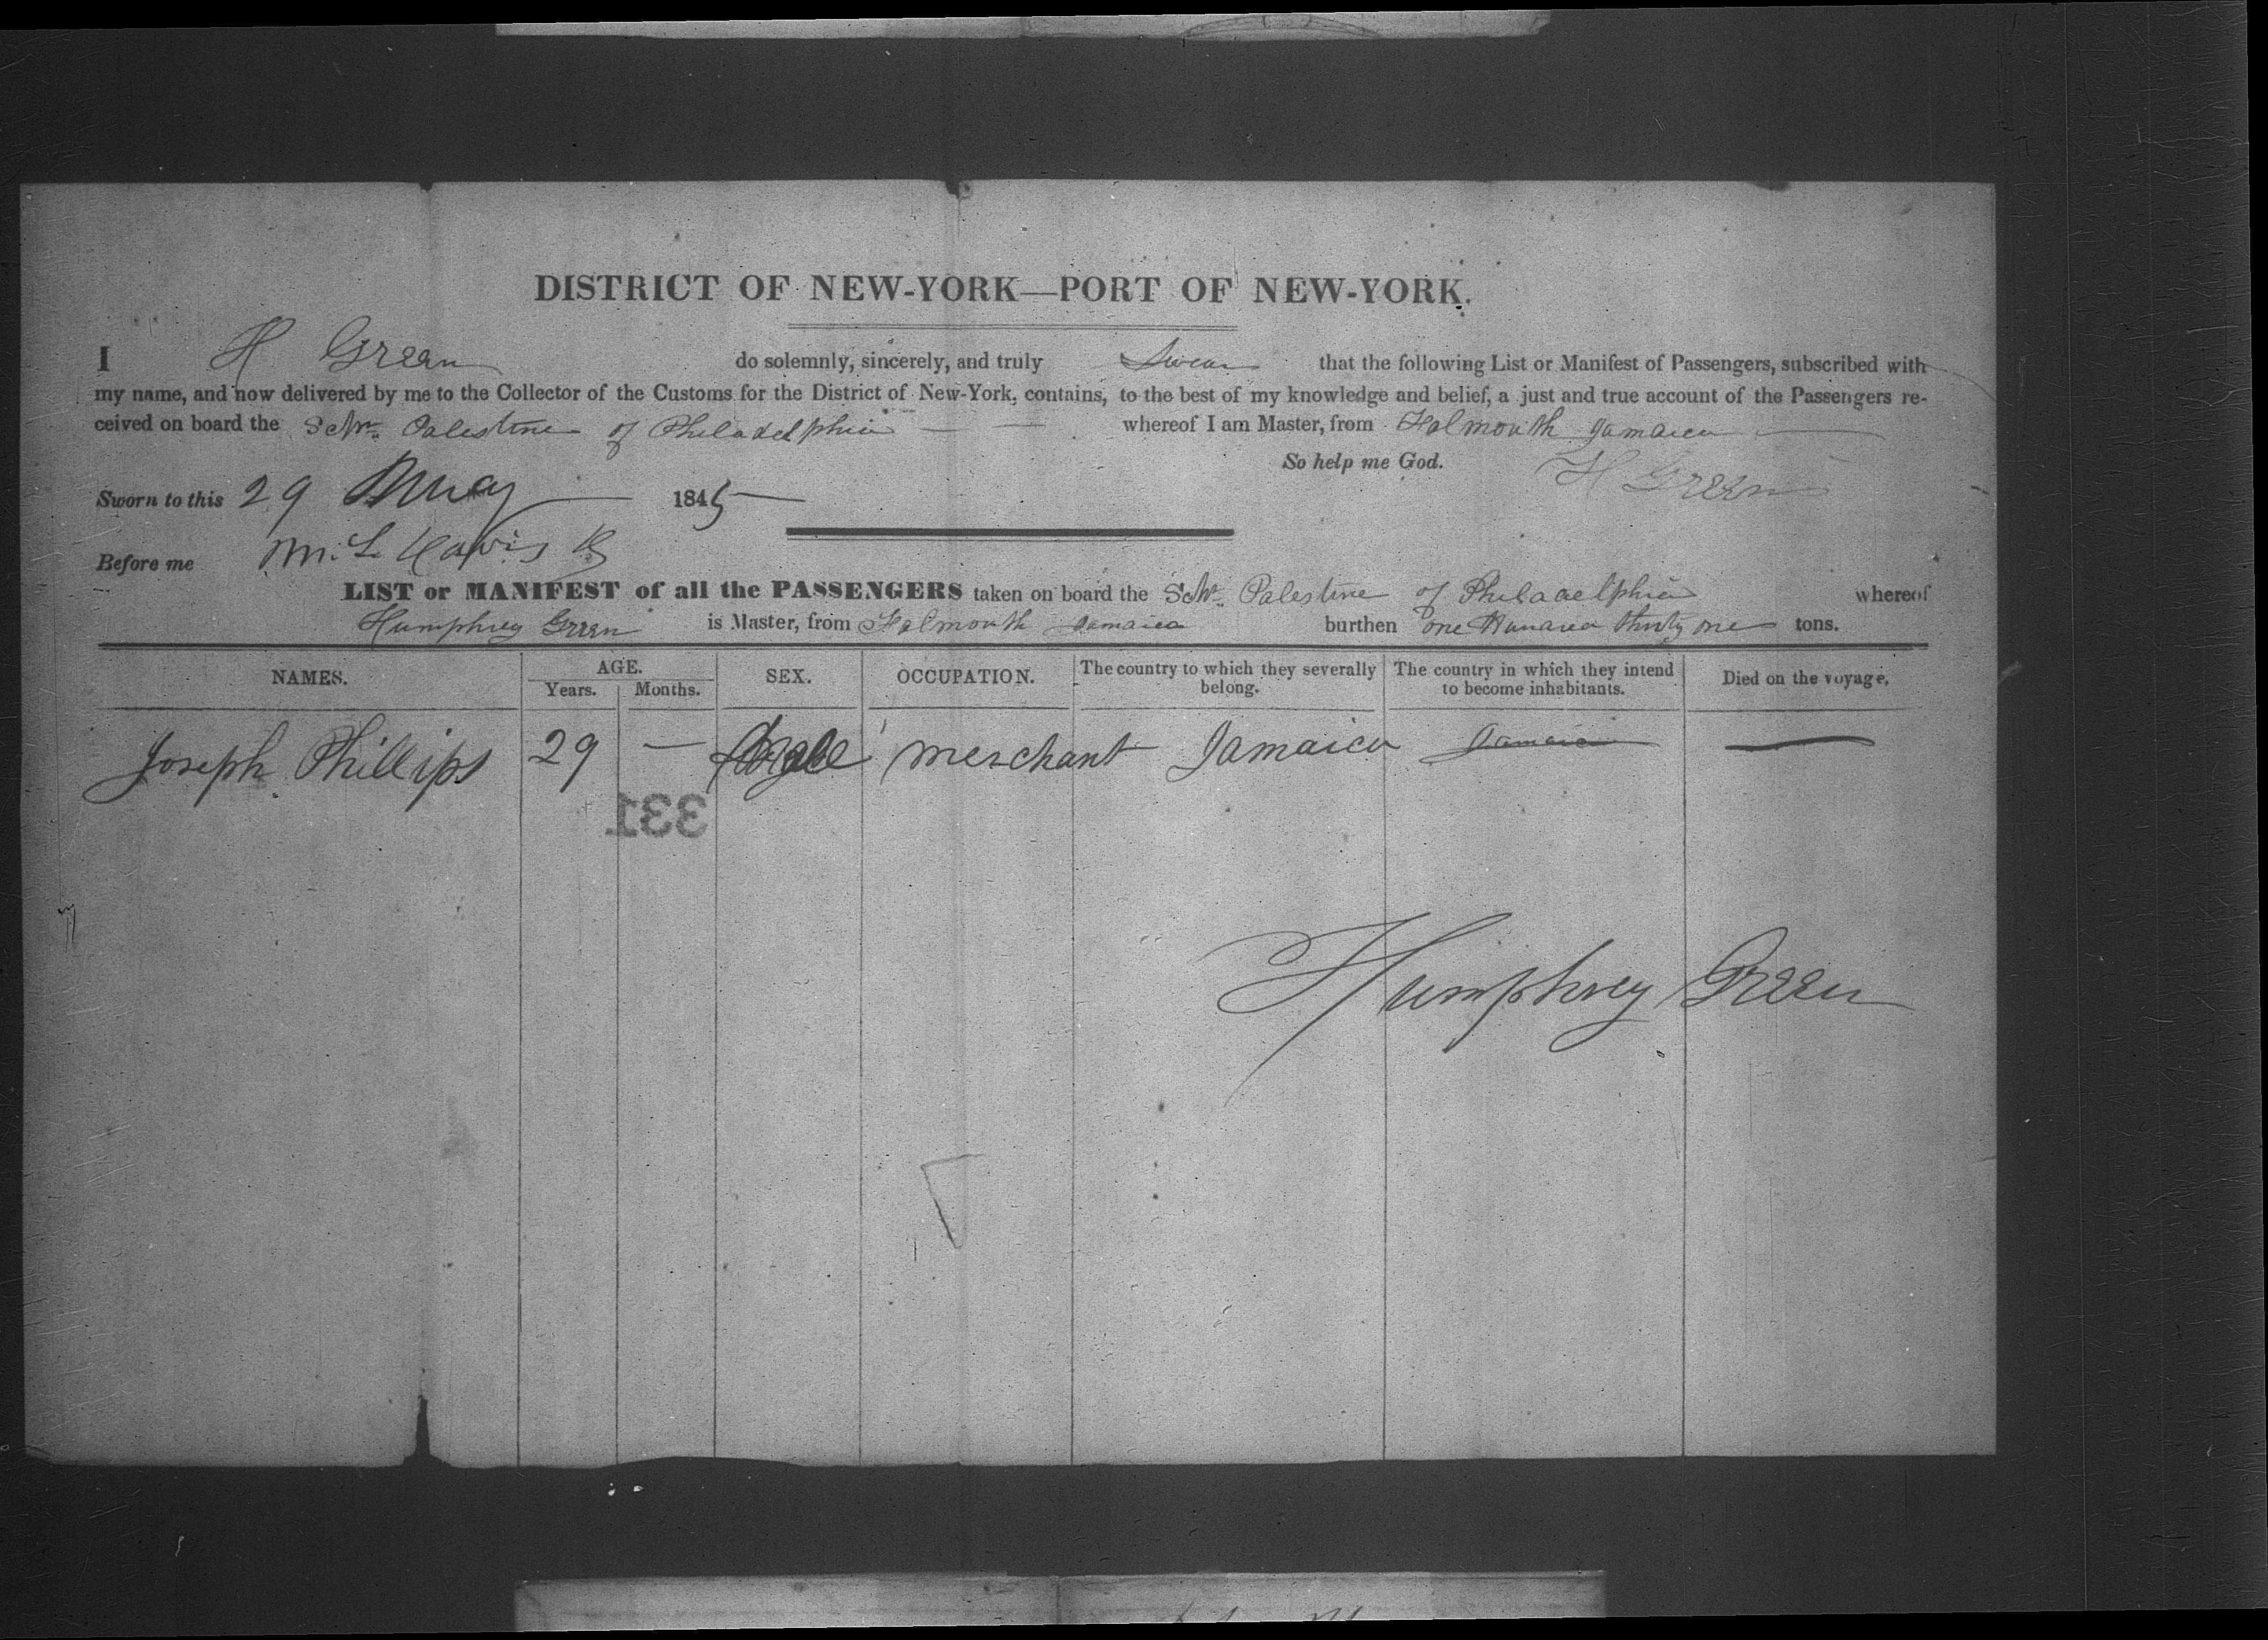 DISTRICT OF NEW-YORK—PORT OF NEW-YORK.
I H Green do solemnly, sincerely, and truly Swear that the following List or Manifest of Passengers, subscribed with
my name, and now delivered by me to the Collector of the Customs for the District of New-York, contains, to the best of my knowledge and belief, a just and true account of the Passengers re-
ceived on board the Schr. Palestine of Philadelphia — — whereof I am Master, from Falmouth Jamaica —
So help me God. H Green
Sworn to this 29 May — 1845 —
Before me
LIST or MANIFEST of all the PASSENGERS taken on board the Schr. Palestine of Philadelphia whereof
Humphrey Green is Master, from Falmouth Jamaica burthen one Hundred thirty one tons.
NAMES. AGE. SEX. OCCUPATION. The country to which they severally The country in which they intend Died on the voyage.
Years. Months. belong. to become inhabitants.
Joseph Phillips 29 — merchant Jamaica Jamaica —
331
Humphrey Green